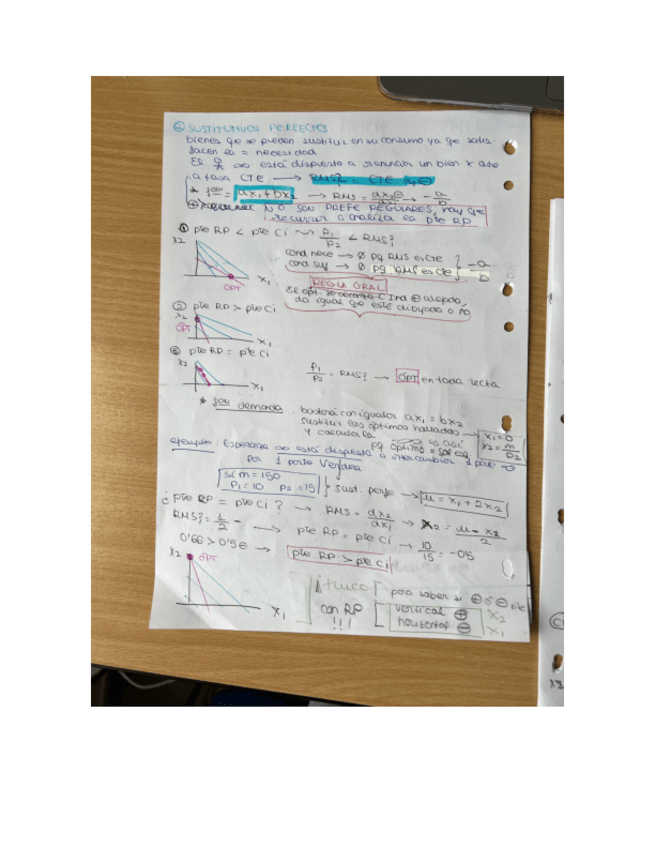 ② SUSTITUTIVOS PERFECTOS
bienes que se pueden sustituir en su consumo ya que satis
facen la = necesidad
El está dispuesto a renunciar un bien x otro
a tasa CTE → RMS = CTE y ⊖
= ax1 + bx2 → RMS = dx2 ⊖ / dx1 → -a/b
NO SON PREFE REGULARES, hay que
recurrir a analiza la pte RP
① pte RP < pte Ci P1/P2 < RMS
X2
cond nece → ∅ pq RMS es cte
cond suf → ∅ pq RMS es cte
-a/b
X1
OPT
REGLA GRAL
da igual que esté dibujada o no
② pte RP > pte Ci
X2
OPT
X1
③ pte RP = pte Ci
X2
X1
P1/P2 = RMS → OPT en toda recta
* demanda bastará con igualar ax1 = bx2
sustituir los óptimos hallados
y calcular la
X1 = 0
X2 = m/P2
ejemplo: Esperanza está dispuesta a intercambiar 1
por 1 Verdura
si m = 150
P1 = 10 P2 = 15
sust. perfe → u = x1 + 2x2
¿pte RP = pte Ci? → RMS = dx2/dx1 → X2 = u - x2 / 2
RMS = 1/2
→ pte RP = pte Ci → 10/15 = -0'5
0'66 > 0'5 ⊖ → pte RP > pte Ci
X2
OPT
X1
¡truco
con RP
!!!
para saber si ⊕ ó ⊖ pte
vertical ⊕ X2
horizontal ⊖ X1